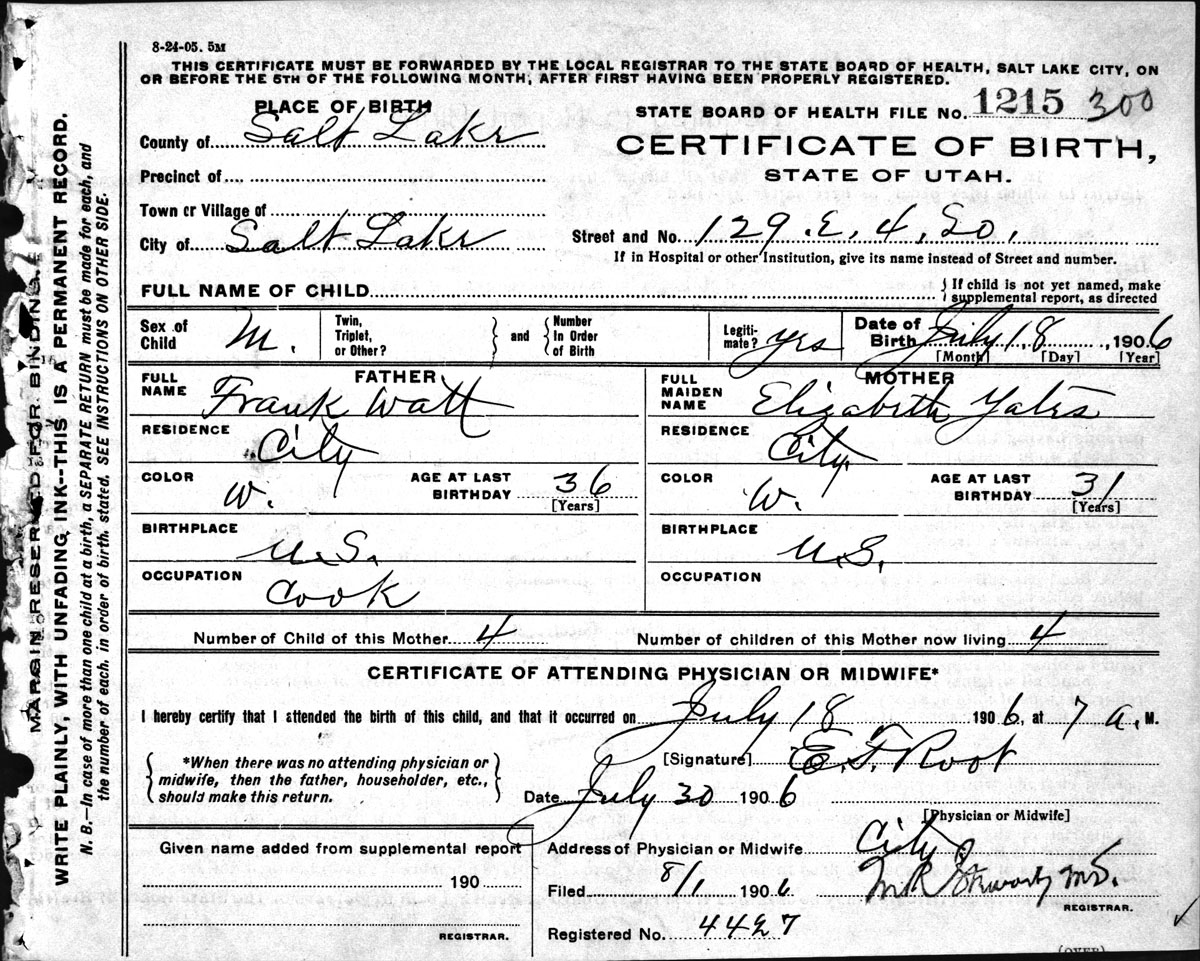 8-24-05. 5M
THIS CERTIFICATE MUST BE FORWARDED BY THE LOCAL REGISTRAR TO THE STATE BOARD OF HEALTH, SALT LAKE CITY, ON
OR BEFORE THE 5TH OF THE FOLLOWING MONTH, AFTER FIRST HAVING BEEN PROPERLY REGISTERED.
PLACE OF BIRTH
STATE BOARD OF HEALTH FILE No. 1215 300
County of Salt Lake
CERTIFICATE OF BIRTH,
Precinct of
STATE OF UTAH.
Town or Village of
City of Salt Lake
Street and No. 129. E. 4. So.
If in Hospital or other Institution, give its name instead of Street and number.
FULL NAME OF CHILD
{ If child is not yet named, make
supplemental report, as directed
Sex of Child M.
Twin, Triplet, or Other? } and { Number In Order of Birth
Legitimate? yes
Date of Birth July 18, 1906
[Month] [Day] [Year]
FATHER
FULL NAME Frank Watt
RESIDENCE City
COLOR W. AGE AT LAST BIRTHDAY 36
[Years]
BIRTHPLACE U.S.
OCCUPATION Cook
MOTHER
FULL MAIDEN NAME Elizabeth Yates
RESIDENCE City
COLOR W. AGE AT LAST BIRTHDAY 31
[Years]
BIRTHPLACE U.S.
OCCUPATION
Number of Child of this Mother 4 Number of children of this Mother now living 4
CERTIFICATE OF ATTENDING PHYSICIAN OR MIDWIFE*
I hereby certify that I attended the birth of this child, and that it occurred on July 18 1906, at 7 a. M.
{ *When there was no attending physician or
midwife, then the father, householder, etc.,
should make this return. }
[Signature] E. F. Root
Date July 30 1906
[Physician or Midwife]
Given name added from supplemental report
190
REGISTRAR.
Address of Physician or Midwife City
Filed 8/1 1906. M R M.D.
REGISTRAR.
Registered No. 4427
(OVER)
MARGIN RESERVED FOR BINDING.
WRITE PLAINLY, WITH UNFADING INK--THIS IS A PERMANENT RECORD.
N. B.—In case of more than one child at a birth, a SEPARATE RETURN must be made for each, and
the number of each, in order of birth, stated. SEE INSTRUCTIONS ON OTHER SIDE.